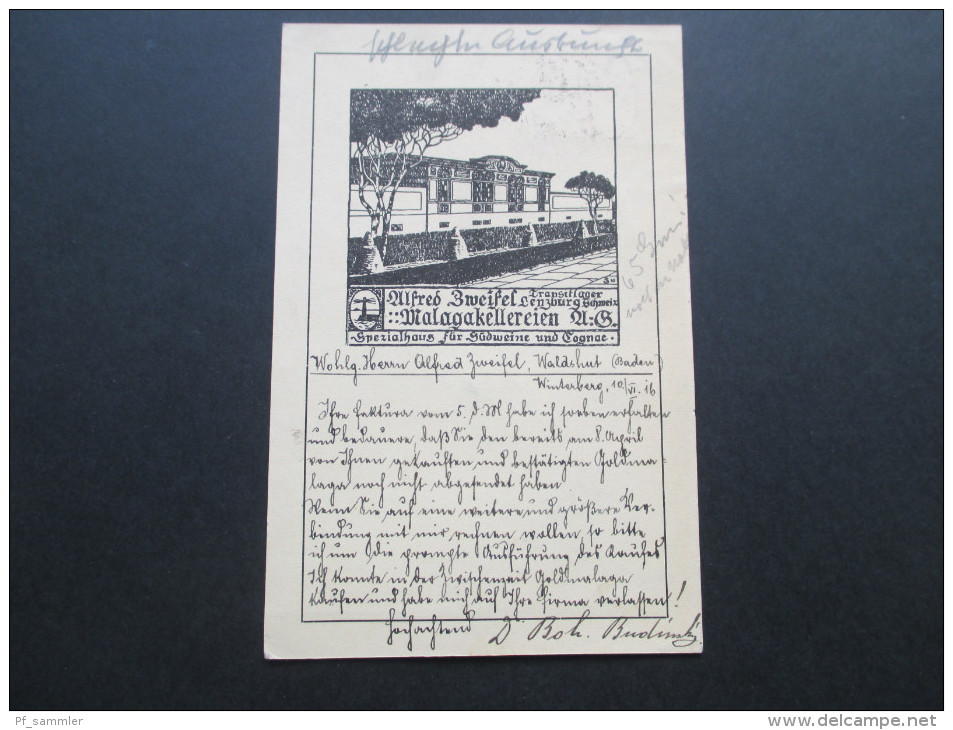 schlechte Auskunft
Alfred Zweifel Transitlager
Lenzburg Schweiz
::Malagakellereien A:G.
·Spezialhaus für Südweine und Cognac·
65 Juni
Wohlg. Herrn Alfred Zweifel, Waldshut (Baden)
Winterberg, 10/VI. 16
Ihre Faktura vom 5. d. M habe ich soeben erhalten
und bedauere, daß Sie den bereits am 8. April
von Ihnen gekauften und bestätigten Goldma-
laga noch nicht abgesendet haben
Wenn Sie auf eine weitere und größere Ver-
bindung mit mir rechnen wollen, so bitte
ich um die prompte Ausführung des Kaufes
Ich konnte in der Zwischenzeit Goldmalaga
kaufen und habe mich auf Ihre Firma verlassen!
Hochachtend Dr Boh.
Pf_sammler
www.delcampe.net